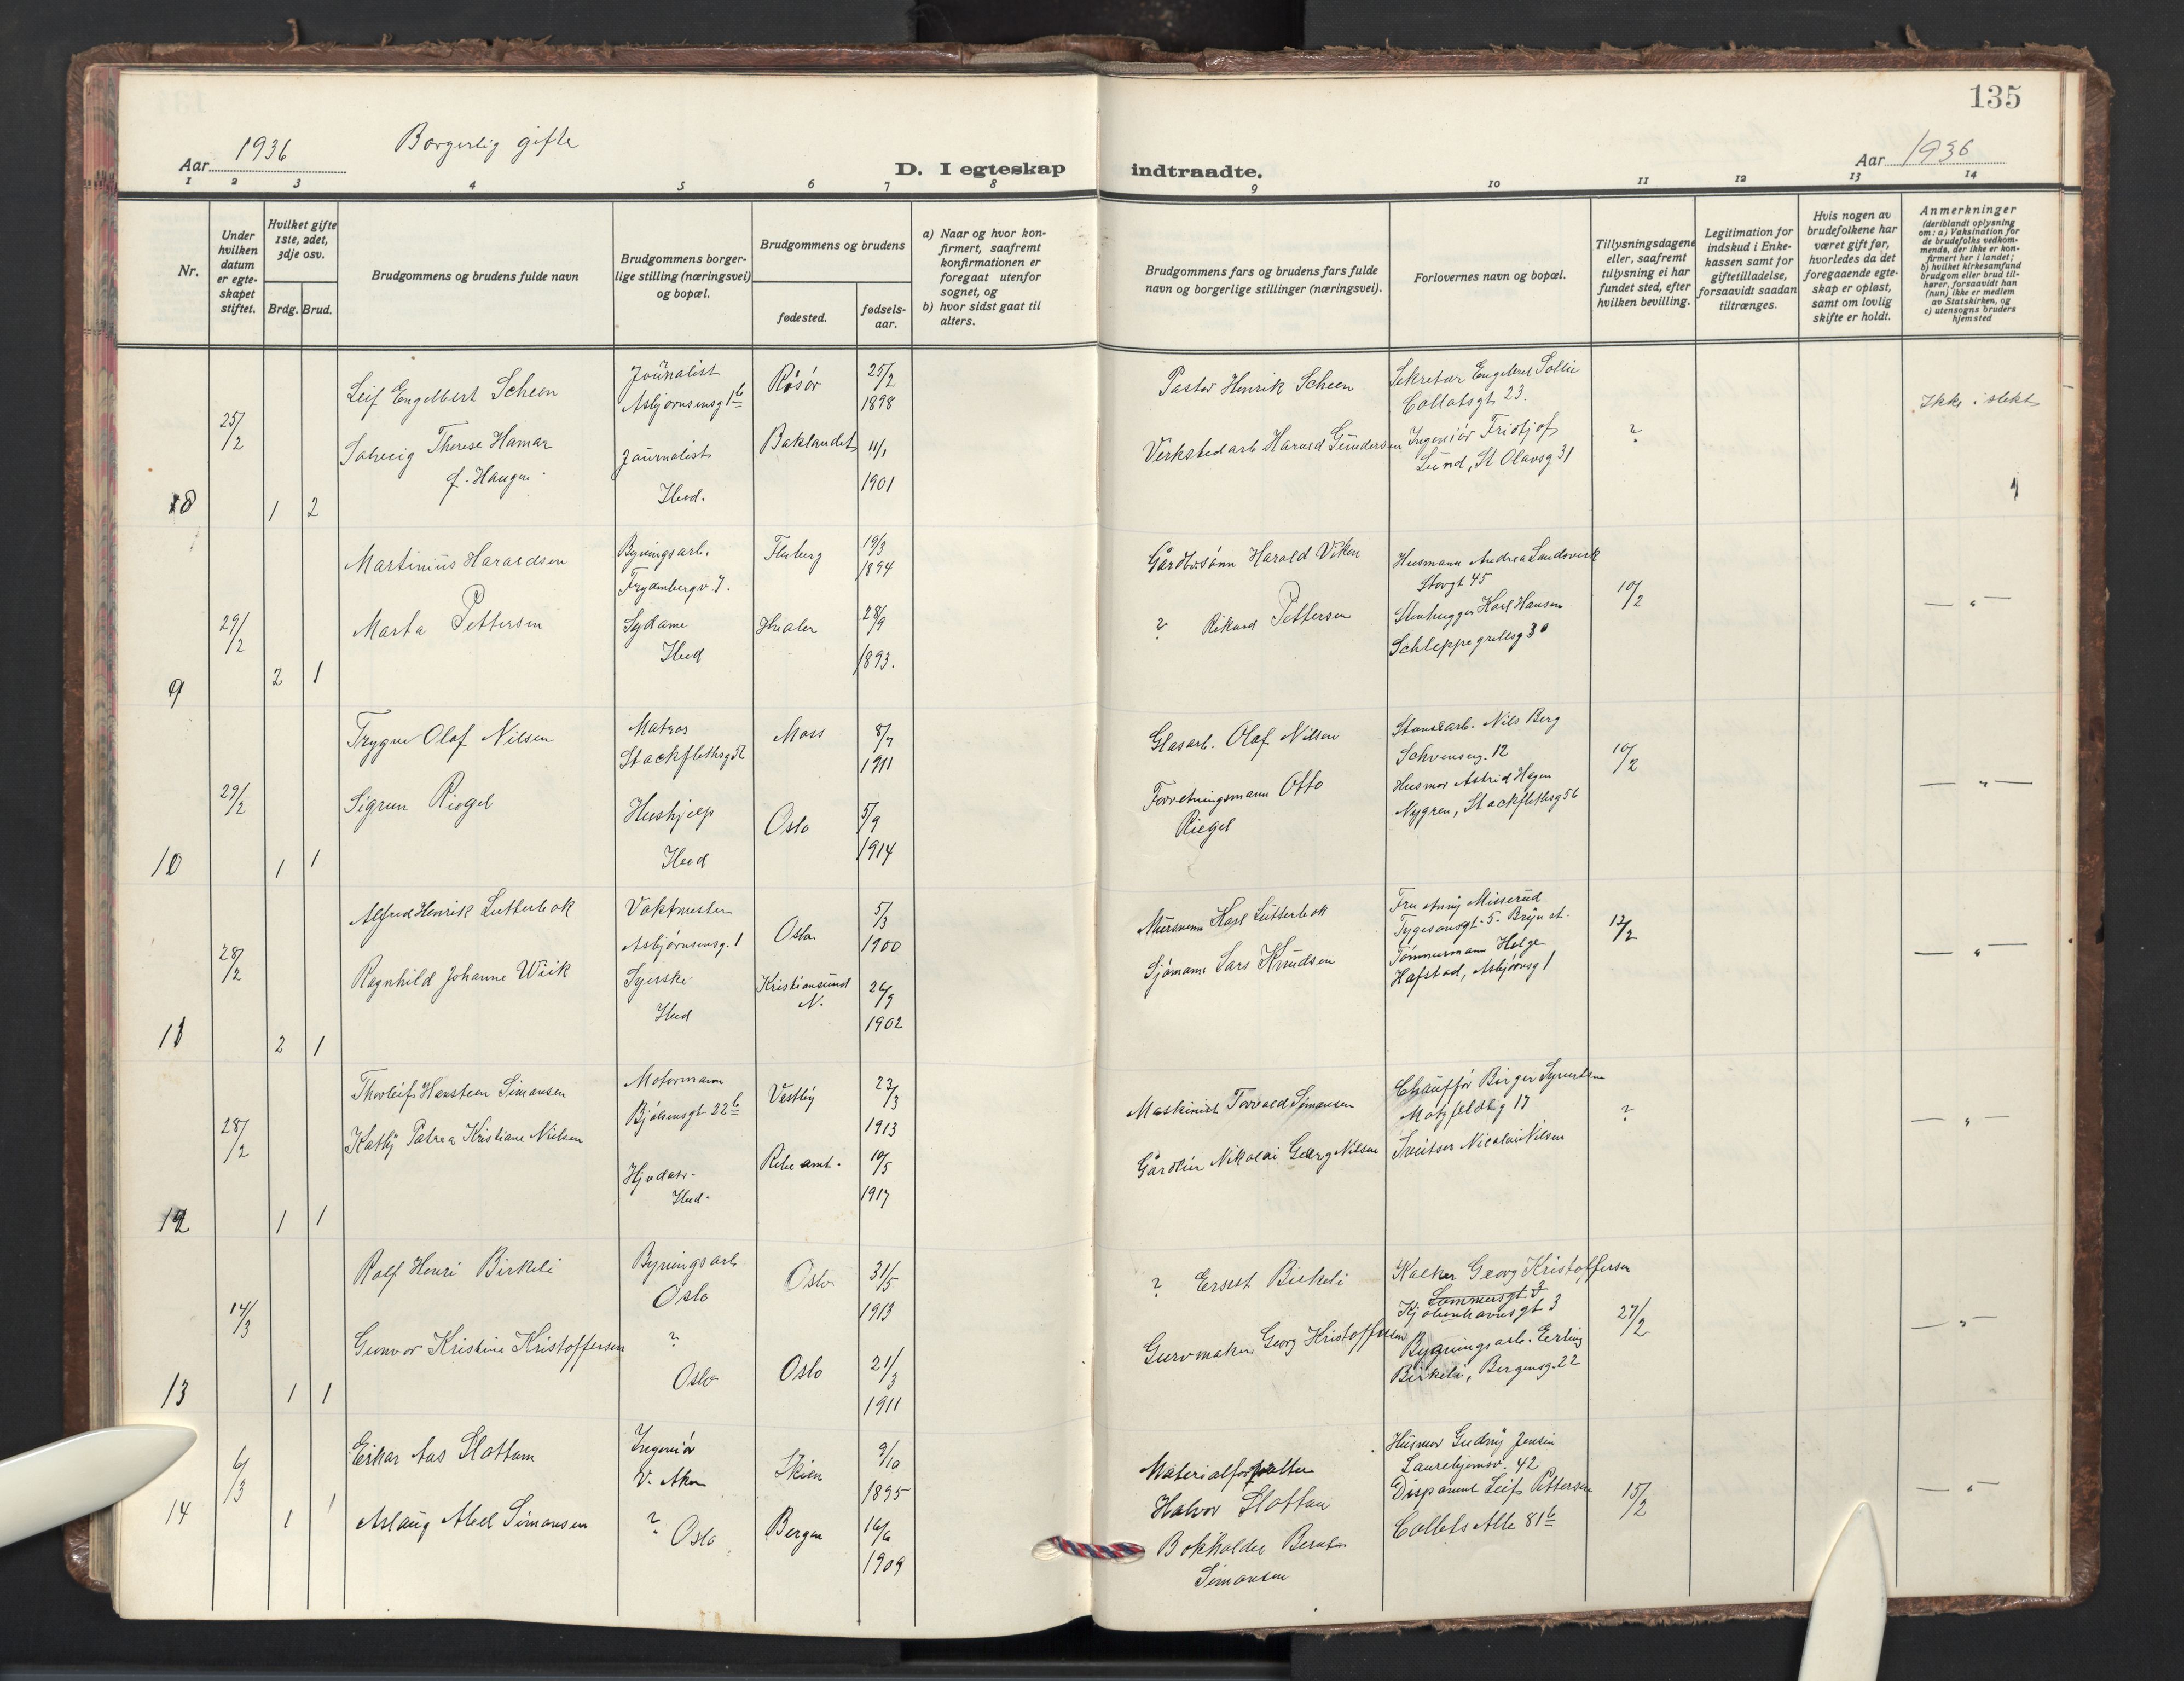 135
Aar 1936
Borgerlig gifte
D. I egteskap indtraadte.
Aar 1936
1 2 3 4 5 6 7 8 9 10 11 12 13 14
Nr.
Under hvilken datum er egteskapet stiftet.
Hvilket gifte 1ste, 2det, 3dje osv.
Brdg. Brud.
Brudgommens og brudens fulde navn
Brudgommens borgerlige stilling (næringsvei) og bopæl.
Brudgommens og brudens
fødested.
fødselsaar.
a) Naar og hvor konfirmert, saafremt konfirmationen er foregaat utenfor sognet, og
b) hvor sidst gaat til alters.
Brudgommens fars og brudens fars fulde navn og borgerlige stillinger (næringsvei).
Forlovernes navn og bopæl.
Tillysningsdagene eller, saafremt tillysning ei har fundet sted, efter hvilken bevilling.
Legitimation for indskud i Enkekassen samt for giftetilladelse, forsaavidt saadan tiltrænges.
Hvis nogen av brudefolkene har været gift før, hvorledes da det foregaaende egteskap er opløst, samt om lovlig skifte er holdt.
Anmerkninger
(deriblandt oplysning om: a) Vaksination for de brudefolks vedkommende, der ikke er konfirmert her i landet;
b) hvilket kirkesamfund brudgom eller brud tilhører, forsaavidt han (hun) ikke er medlem av Statskirken, og
c) utensogns bruders hjemsted
8
25/2
1 2
Leif Engelbert Scheen
Journalist
Asbjørnsensg 1b
Risør
25/2
1898
Pastor Henrik Scheen
Sekretær Engebret Sollie
Colletsgt. 23.
Ikke i slekt
Solveig Therese Hamar
f. Haugen
Journalist
Ibid.
Baklandet
11/1
1901
Verkstedarb Harald Gundersen
Ingeniør Fridtjof
Lund, St Olavsg 31
?
9
29/2
2 1
Martinius Haraldsen
Bygningsarb.
Frydenbergv. 7.
Fluberg
19/3
1894
Gårdbr.sønn Harald Viken
Husmann Andrea Landsverk
Storgt 45
10/2
Marta Pettersen
Sydame
Ibid
Hvaler
28/9
1893.
? Rikard Pettersen
Stenhugger Karl Hansen
Schleppegrellsg 30
— " —
10
29/2
1 1
Trygve Olaf Nilsen
Matros
Stockflethsg 56
Moss
8/7
1911
Glasarb. Olaf Nilsen
Stansearb. Nils Berg
Schvenseng. 12
10/2
Sigrun Riegel
Hushjelp
Ibid
Oslo
5/9
1914
Forretningsmann Otto
Riegel
Husmor Astrid Hagen
Nygren, Stockflethsg 56
— " —
11
28/2
2 1
Alfred Henrik Lutterbok
Vaktmester
Asbjørnsensg. 1
Oslo
5/3
1900
Mursvenn Karl Lutterbok
Fru Anny Misserud
5. Bryn st.
12/2
Ragnhild Johanne Wiik
Syerske
Ibid
Kristiansund
N.
26/9
1902
Sjømann Lars Knudsen
Tømmermann Helge
Hafstad, Asbjørnsg 1
— " —
12
28/2
1 1
Thorleif Hansteen Simonsen
Motormann
Bjølsensgt 22b
Vestby
23/3
1913
Maskinist Torvald Simonsen
Chauffør Birger Syvertsen
Motzfeldtsg 17
?
Kathy Petrea Kristiane Nielsen
Ibid.
Ribe amt.
10/5
1917
Gårdeier Nikolai Georg Nilsen
Sveitser Nicolai Nilsen
— " —
13
14/3
1 1
Rolf Henri Birkeli
Bygningsarb
Oslo
Oslo
31/5
1913
? Ernst Birkeli
Georg Kristoffersen
Sommersgt 3
Kjøbenhavnsgt 3
27/2
Gunvor Kristine Kristoffersen
?
Oslo
Oslo
21/3
1911
Georg Kristoffersen
Bygningsarb. Erling
Birkeli, Bergensg. 22
— " —
14
6/3
1 1
Einar Aas Slottam
Ingeniør
V. Aker
Skien
9/10
1895
Materialforvalter
Halvor Slottam
Husmor Gudny Jensen
42
Disponent Leif Pettersen
15/2
Aslaug Abel Simonsen
?
Oslo
Bergen
16/6
1909
Bokholder Bernt
Simonsen
Collets Alle 81b
— " —